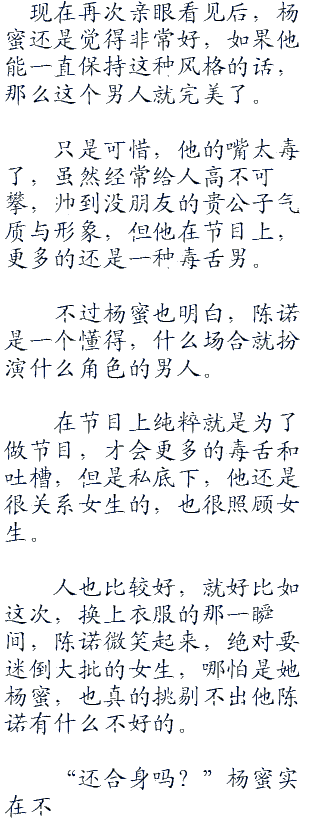 现在再次亲眼看见后，杨
蜜还是觉得非常好，如果他
能一直保持这种风格的话，
那么这个男人就完美了。
只是可惜，他的嘴太毒
了，虽然经常给人高不可
攀，帅到没朋友的贵公子气
质与形象，但他在节目上，
更多的还是一种毒舌男。
不过杨蜜也明白，陈诺
是一个懂得，什么场合就扮
演什么角色的男人。
在节目上纯粹就是为了
做节目，才会更多的毒舌和
吐槽，但是私底下，他还是
很关系女生的，也很照顾女
生。
人也比较好，就好比如
这次，换上衣服的那一瞬
间，陈诺微笑起来，绝对要
迷倒大批的女生，哪怕是她
杨蜜，也真的挑剔不出他陈
诺有什么不好的。
“还合身吗？”杨蜜实
在不